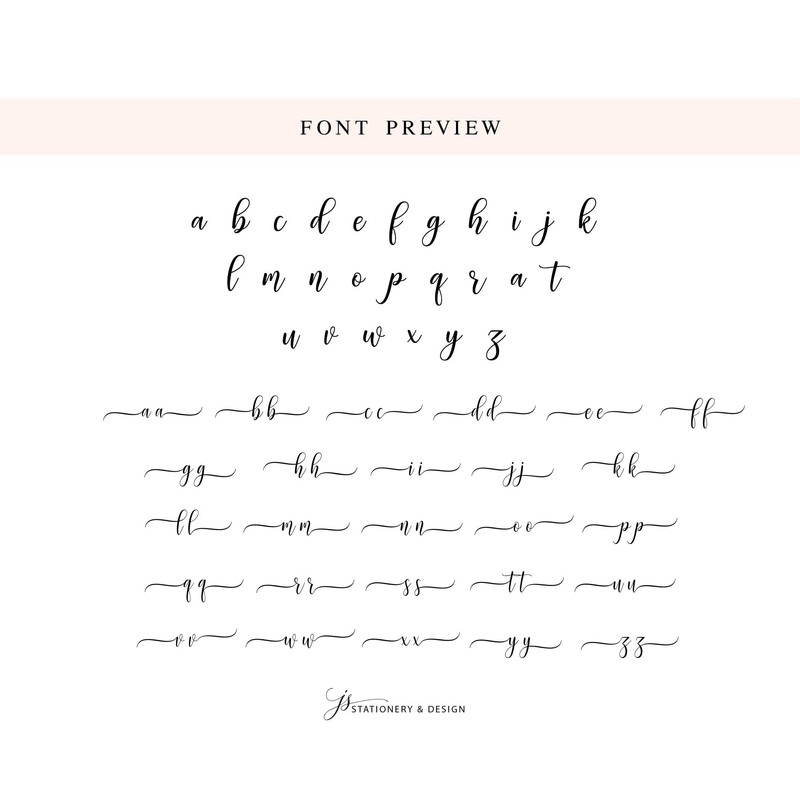 FONT PREVIEW
a b c d e f g h i j k
l m n o p q r a t
u v w x y z
aa bb cc dd ee ff
gg hh ii jj kk
ll mm nn oo pp
qq rr ss tt uu
vv ww xx yy zz
js STATIONERY & DESIGN